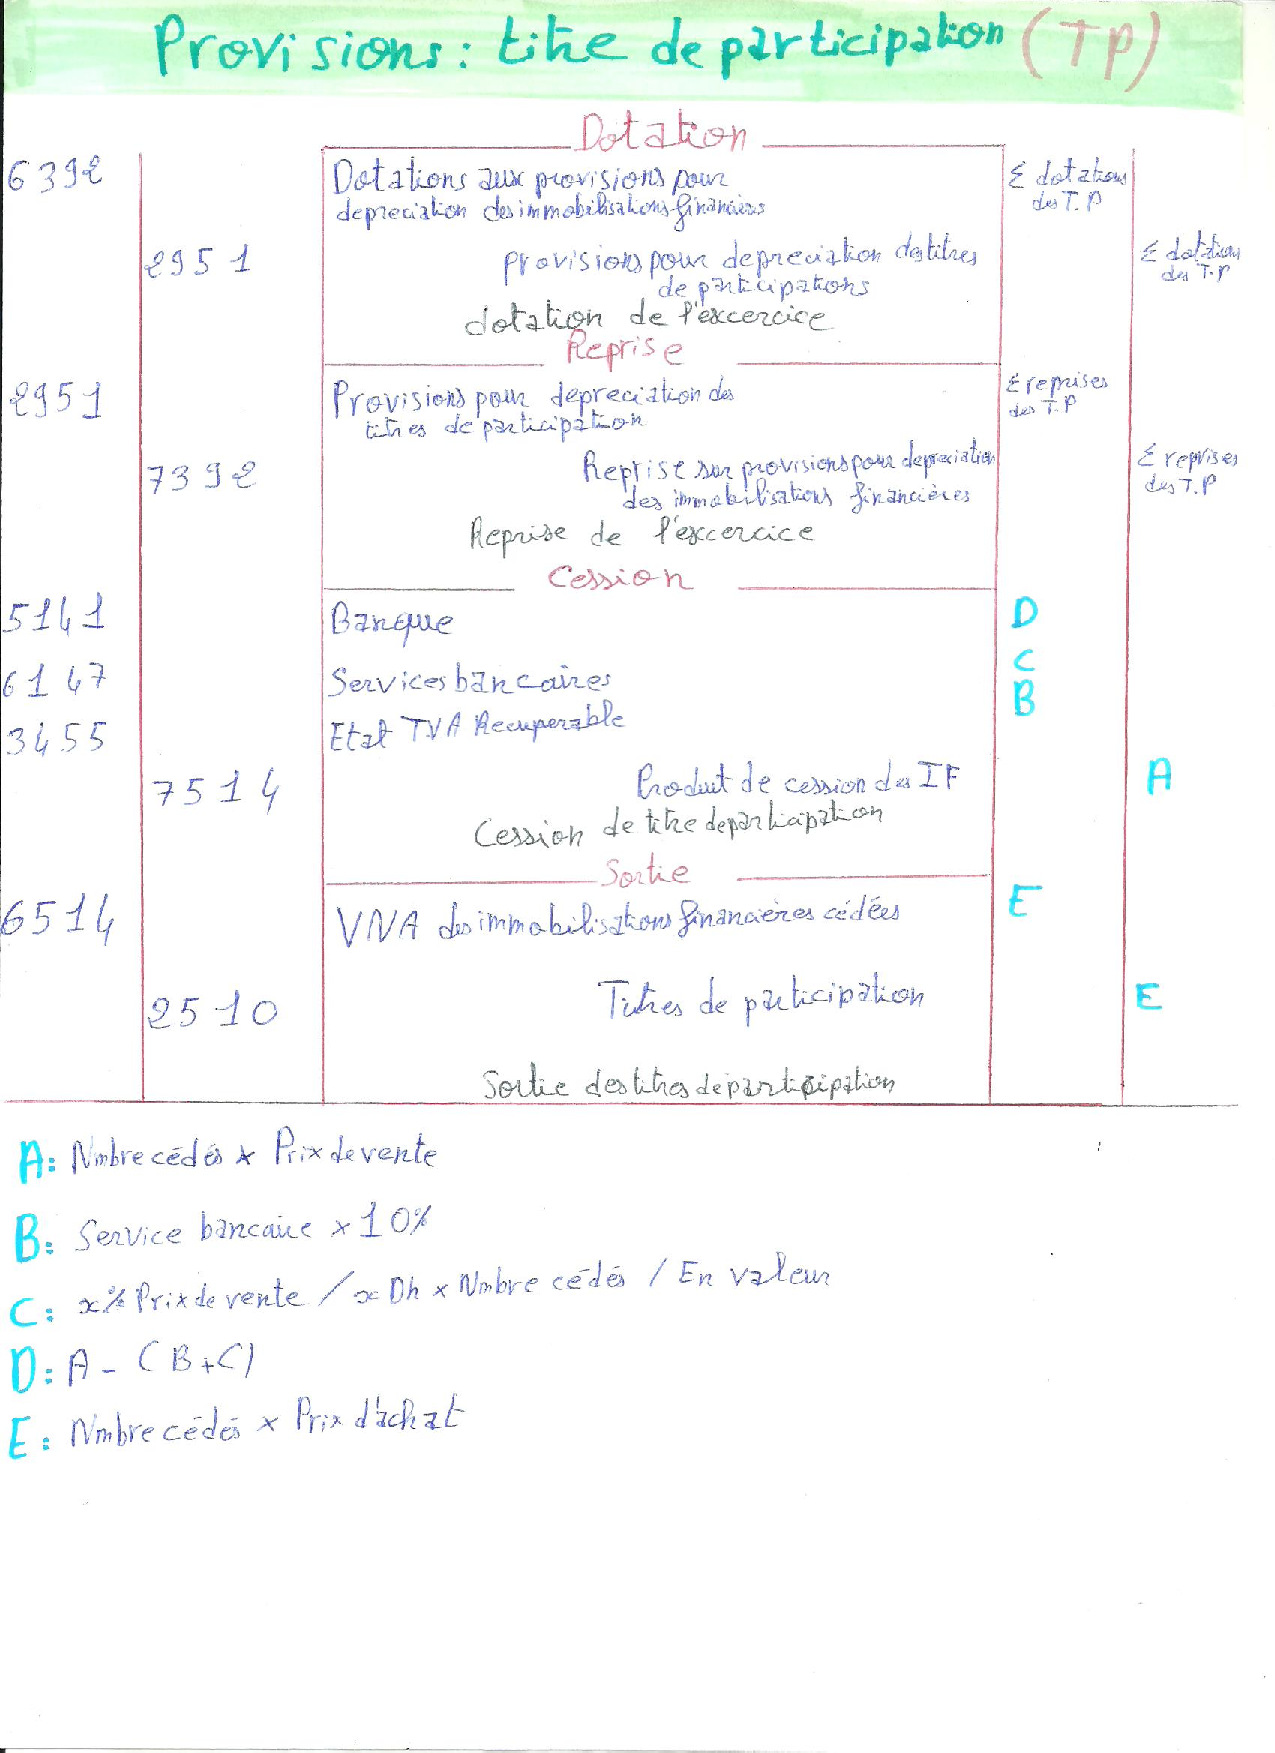 Provisions: titre de participation (TP)
Dotation
6392 Dotations aux provisions pour Σ dotations
depreciation des immobilisations financières des T.P
2951 provisions pour depreciation des titres Σ dotations
de participations des T.P
dotation de l'excercice
Reprise
2951 Provisions pour depreciation des Σ reprises
titres de participation des T.P
7392 Reprise sur provisions pour depreciation Σ reprises
des immobilisations financières des T.P
Reprise de l'excercice
Cession
5141 Banque D
6147 Services bancaires C
3455 Etat TVA Recuperable B
7514 Produit de cession des IF A
Cession de titre de participation
Sortie
6514 VNA des immobilisations financières cédées E
2510 Titres de participation E
Sortie des titres de participation
A: Nmbre cédés x Prix de vente
B: Service bancaire x 10%
C: x% Prix de vente / x Dh x Nmbre cédés / En valeur
D: A - (B+C)
E: Nmbre cédés x Prix d'achat